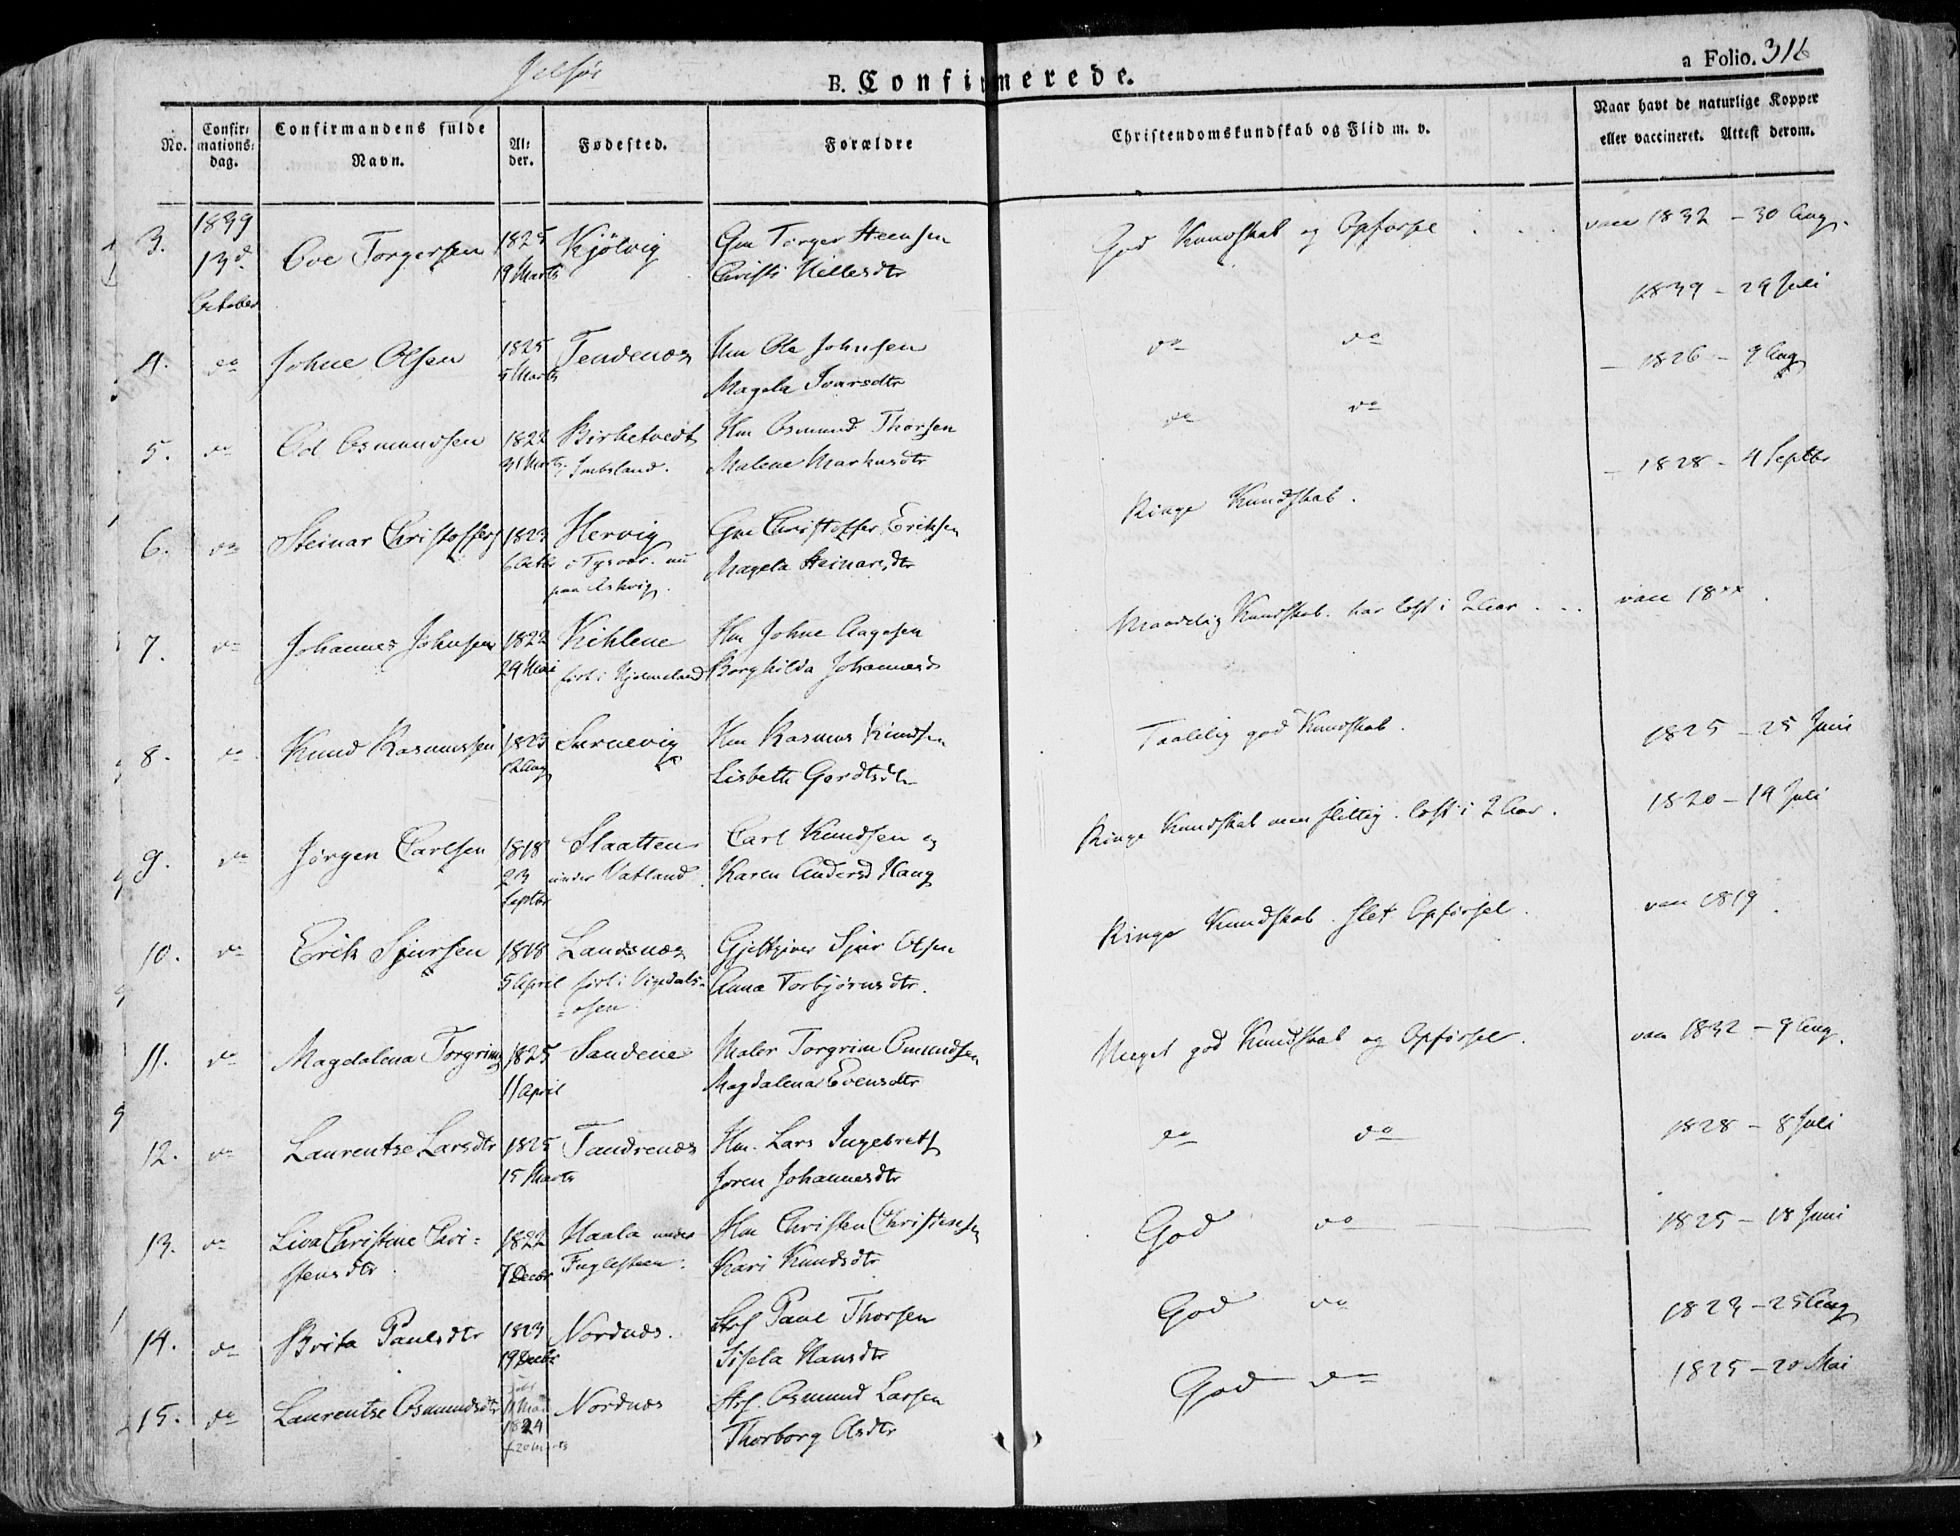 Jelsør
B. Confirmerede.
a Folio. 316
No.
Confir:
mations:
dag.
Confirmandens fulde
Navn.
Al:
der.
Fødested.
Forældre
Christendomskundskab og Flid m. v.
Naar havt de naturlige Kopper
eller vaccineret. Attest derom.
3. 1839 13d. October Ove Torgersen 1825 19 Marts Kjölvig
Gm Torger Steensen
Christi Nillesdtr
God Kundskab og Opførsel
vacc 1832 - 30 Aug.
4. do Johne Olsen 1825 5 Marts Tendenæs
Hm Ole Johnsen
Magela Ivarsdtr
do do
1839 - 29 Juli
5. do Od Osmundsen 1822 31 Marts Birketvedt Imbsland.
Hm Osmund Thorsen
Malene Markusdtr
do do
- 1826 - 9 Aug
6. do Steinar Christoffers 1823 6 Octbr Hervig i Tysvær. nu paa Askvig.
Gm Christoffer Eriksen
Magela Steinaresdtr
Ringe Kundskab.
- 1828 - 4 Septbr
7. do Johannes Johnsen 1822 29 Mai Kihlene født i Hjelmeland
Hm Johne Aagesen
Borghilda Johannesd
Maadelig Kundskab. har læst i 2 Aar
vacc 18**.
8. do Knud Rasmussen 1823 12 Aug Sarnevig
Hm Rasmus Knudsen
Lisbeth Gerdtsdtr
Taalelig god Kundskab.
1825 - 25 Juni
9. do Jørgen Carlsen 1818 23 Septbr Slaatten under Vatland
Carl Knudsen og
Karen Andersd Haug
Ringe Kundskab men flittig. læst i 2 Aar.
1820 - 19 Juli
10. do Erik Sjursen 1818 5 April Landsnæs født i Vigedals-
=osen
Gjestgiver Sjur Olsen
Anna Torbjørnsdtr.
Ringe Kundskab. slet Opførsel.
vacc 1819
11. do Magdalena Torgrims 1825 11 April Sandene
Maler Torgrim Omundsen
Magdalena Evensdtr
Meget god Kundskab og Opførsel.
vacc 1832 - 9 Aug.
12. do Laurentse Larsdtr 1825 15 Marts Tandrenæs
Hm. Lars Ingebrets
Joren Johannesdtr
do do
1828 - 8 Juli
13. do Liva Christine Chri=
stensdtr 1822 7 Decbr Haala under Fuglesteen.
Hm Christen Christensen
Kari Knudsdtr
God do
1825 - 18 Juni
14. do Brita Paulsdtr 1823 19 Decbr Nordnæs.
Strf Paul Thorsen
Sisela Hansdtr
God do
1823 - 25 Aug
15. do Laurentse Osmundsdtr 1824 Nordnæs
Strf. Osmund Larsen
Thorborg Olsdtr
God do
1825 - 20 Mai